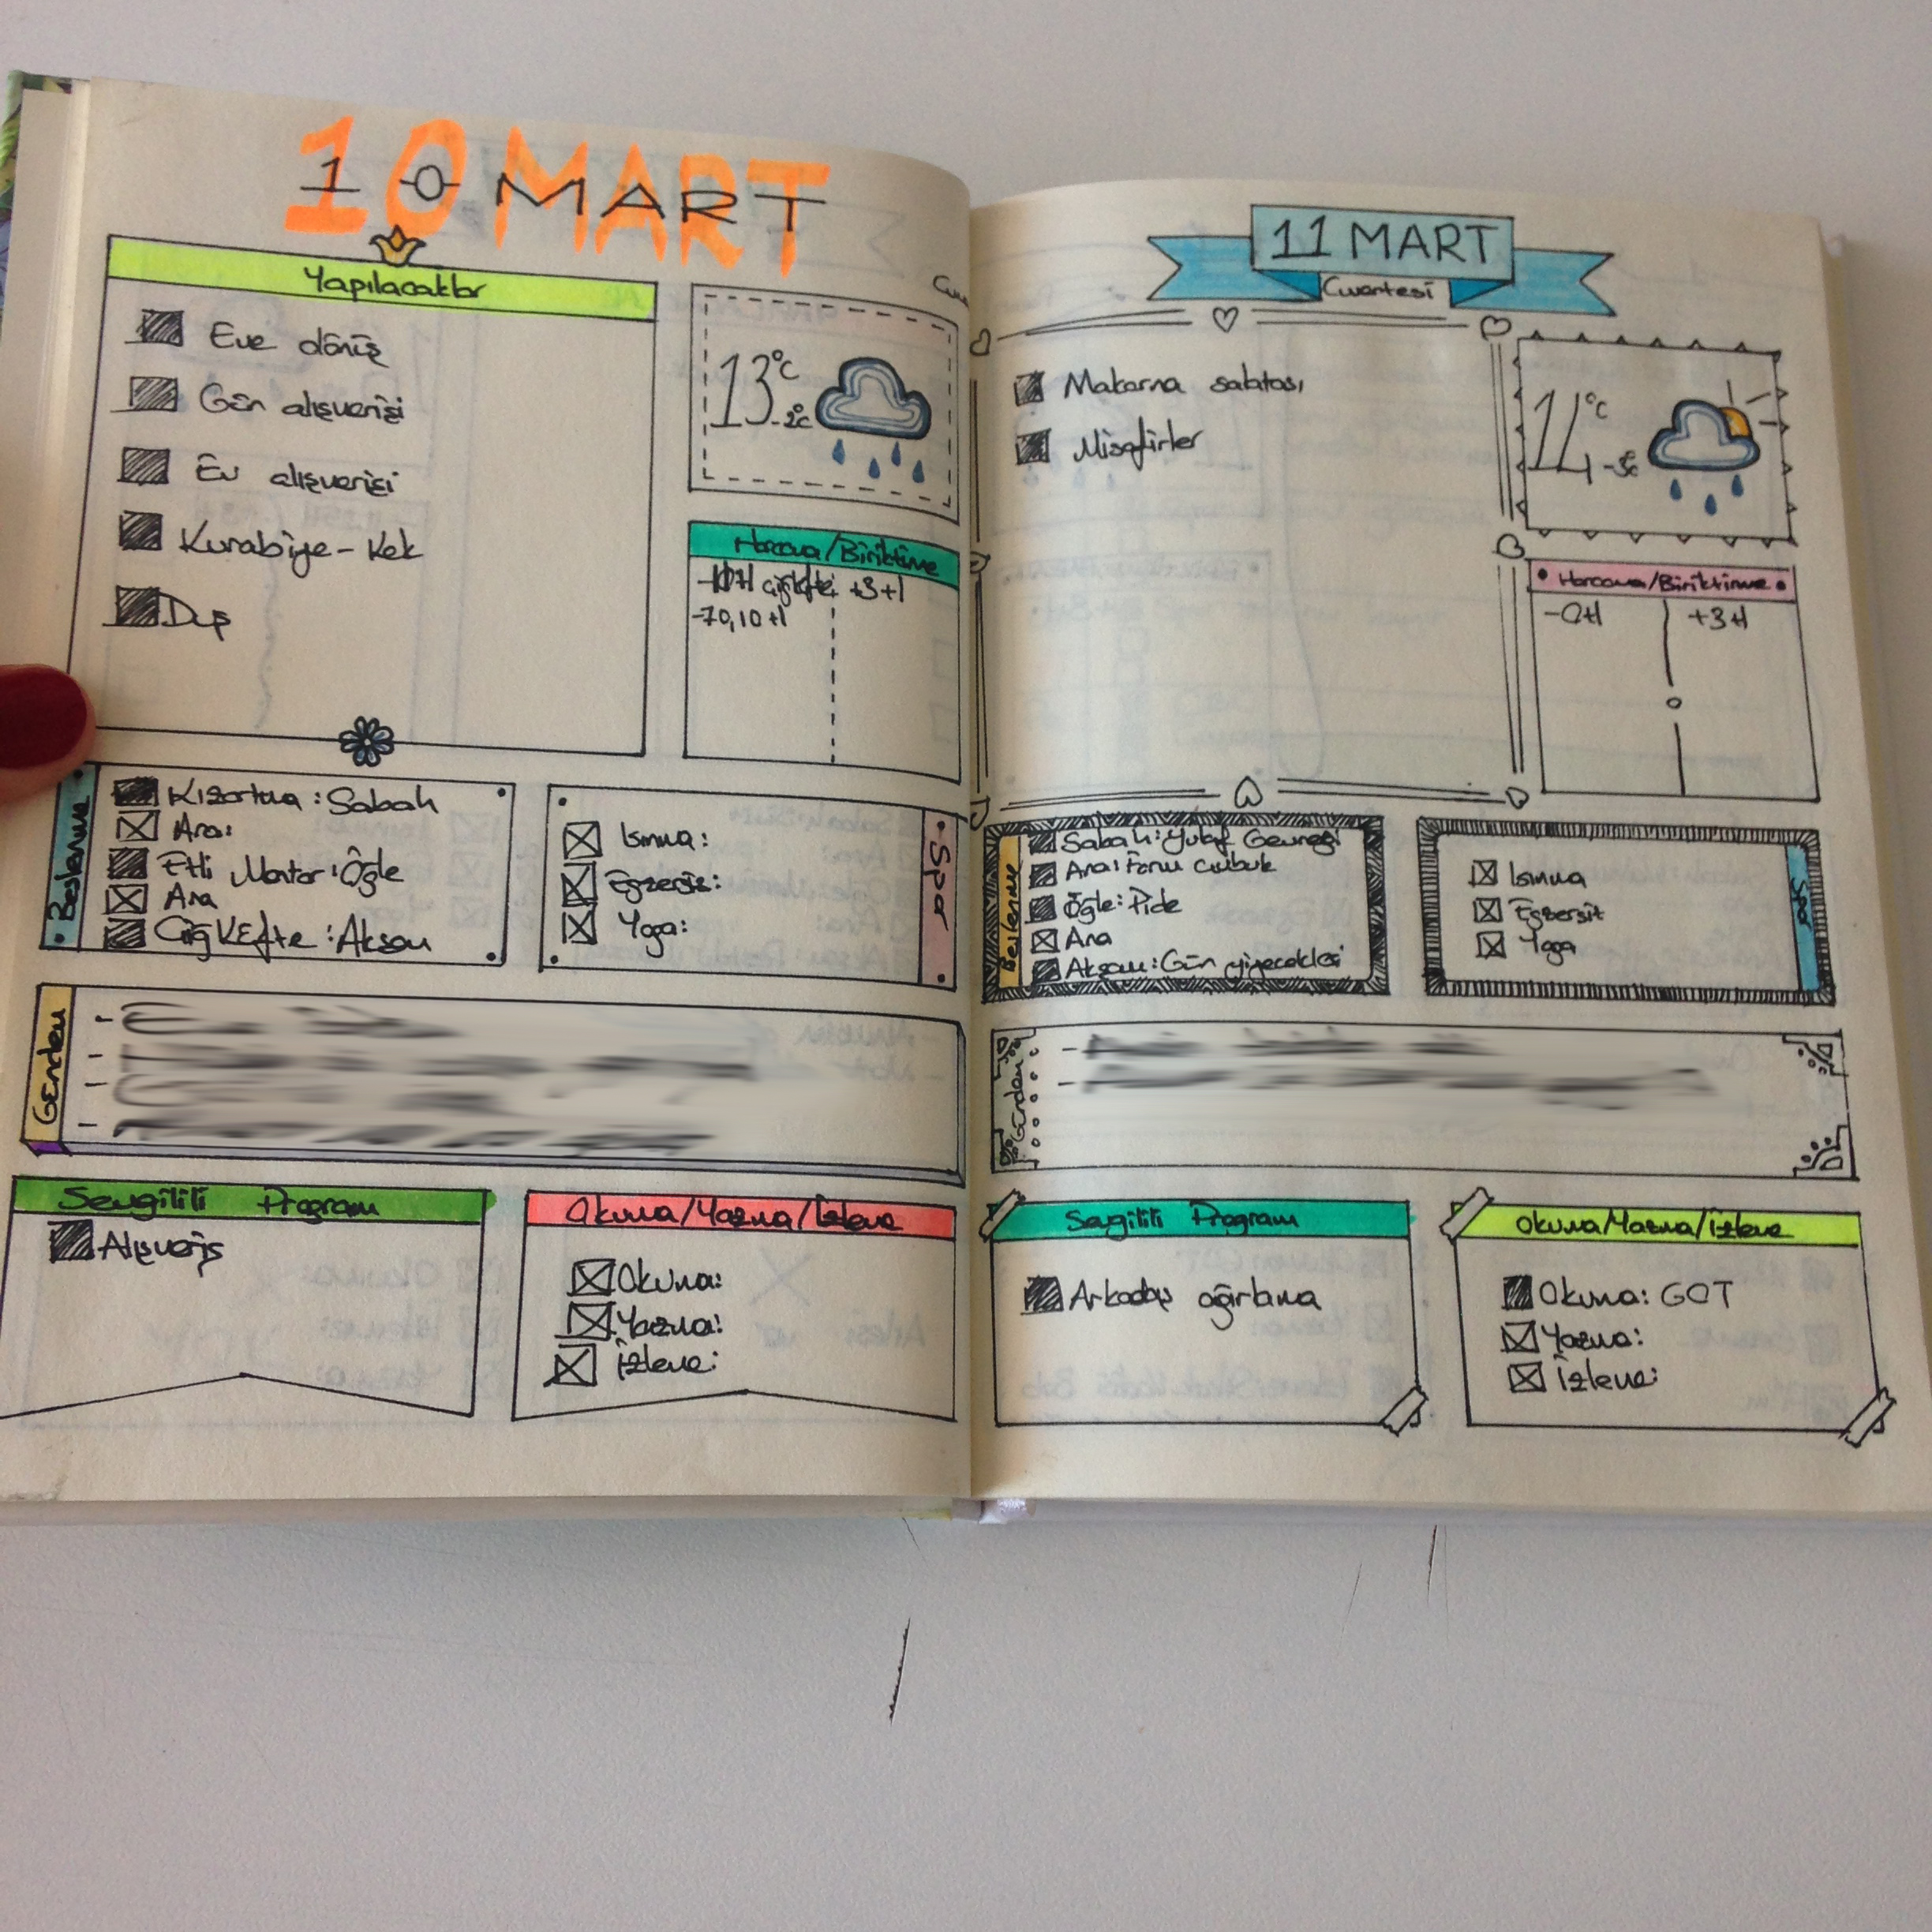 10 MART
Yapılacaklar
Eve dönüş
Gün alışverişi
Ev alışverişi
Kurabiye - Kek
Duş
13°C
-2°C
Harcama/Biriktirme
-10tl çiğköfte +3tl
-70,10tl
Beslenme
Kızartma : Sabah
Ara:
Etli Mantar : Öğle
Ara
Çiğ Köfte : Akşam
Spor
Isınma:
Egzersiz:
Yoga:
Günden
Sevgilili Program
Alışveriş
Okuma/Yazma/İzleme
Okuma:
Yazma:
İzleme:
11 MART
Cumartesi
Makarna salatası
Misafirler
14°C
-3°C
Harcama/Biriktirme
-0tl +3tl
Beslenme
Sabah: Yulaf Gevreği
Ara: Form çubuk
Öğle: Pide
Ara
Akşam: Gün yiyecekleri
Spor
Isınma
Egzersiz
Yoga
Günden
Sevgilili Program
Arkadaş ağırlama
Okuma/Yazma/İzleme
Okuma: GOT
Yazma:
İzleme: